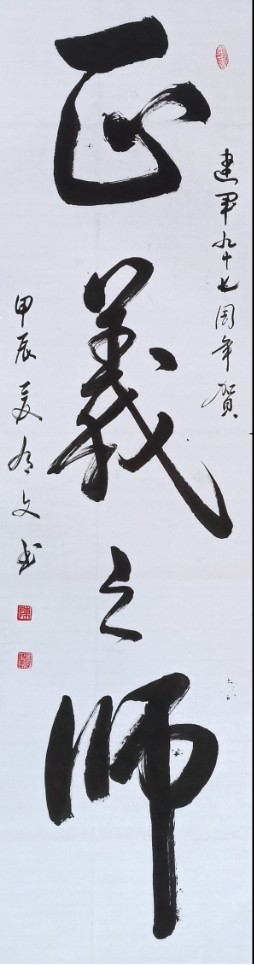 建军九十七周年賀
正義之師
甲辰夏文书